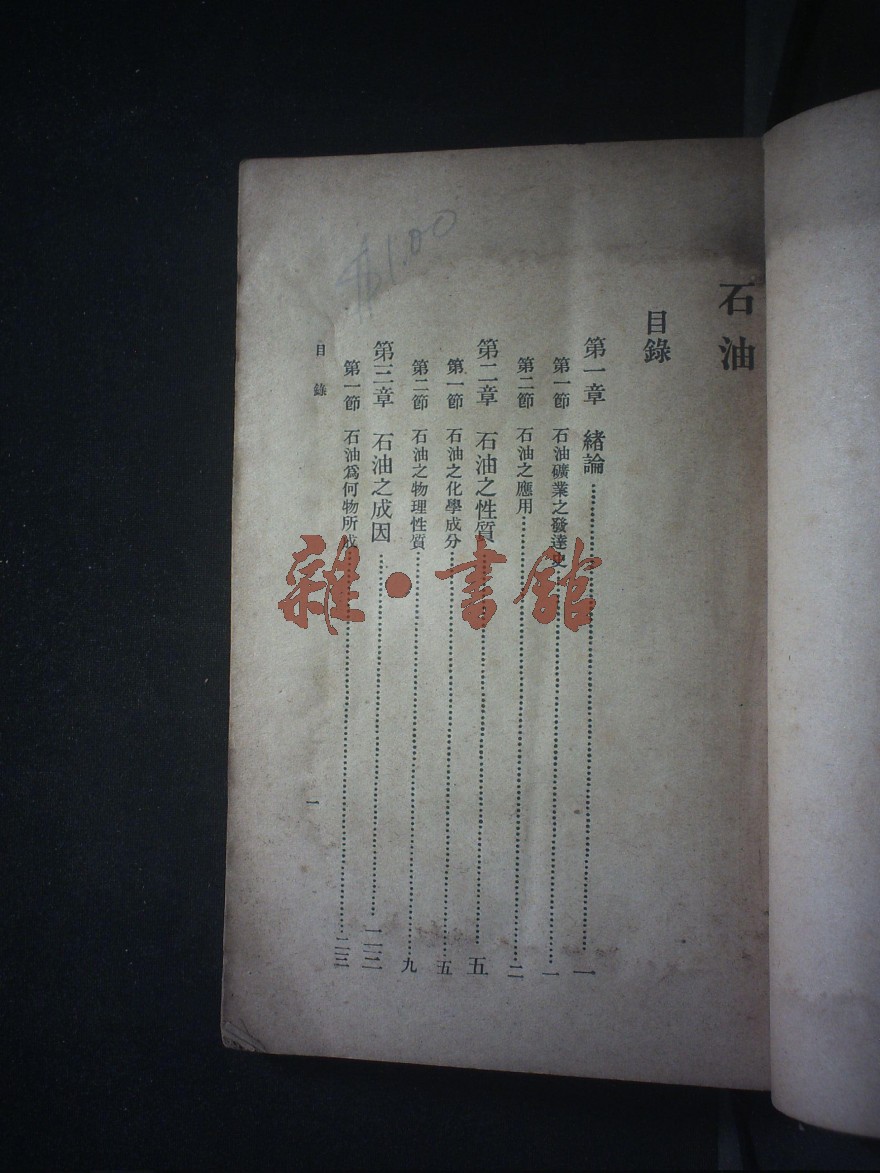 石油
目錄
第一章 緒論 一
第一節 石油礦業之發達史 一
第二節 石油之應用 二
第二章 石油之性質 五
第一節 石油之化學成分 五
第二節 石油之物理性質 九
第三章 石油之成因
第一節 石油爲何物所成
目錄
一
$1.00
雜·書館